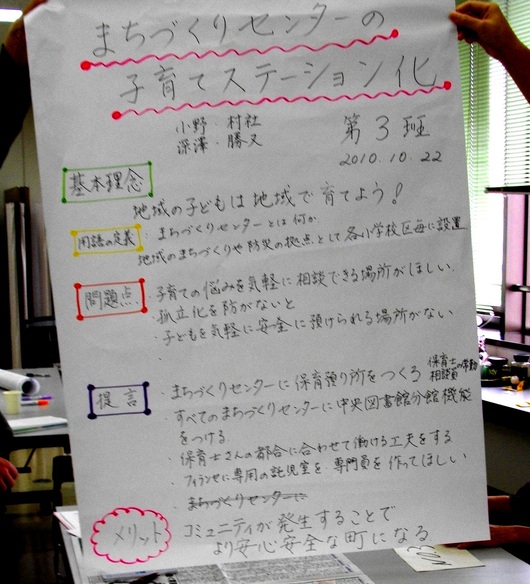 まちづくりセンターの
子育てステーション化
小野・村社
深澤・勝又
第3班
2010.10.22
基本理念
地域の子どもは地域で育てよう!
用語の定義
・まちづくりセンターとは何か
地域のまちづくりや防災の拠点として各小学校区毎に設置
問題点
・子育ての悩みを気軽に相談できる場所がほしい
・孤立化を防がないと
・子どもを気軽に安全に預けられる場所がない
・
提言
・まちづくりセンターに保育預り所をつくろ 保育士 相談員の常勤
・すべてのまちづくりセンターに中央図書館分館機能
をつける
・保育士さんの都合に合わせて働ける工夫をする
・フィランセに専用の託児室を 専門員を作ってほしい
・まちづくりセンターに
メリット
コミュニティが発生することで
より安心安全な町になる